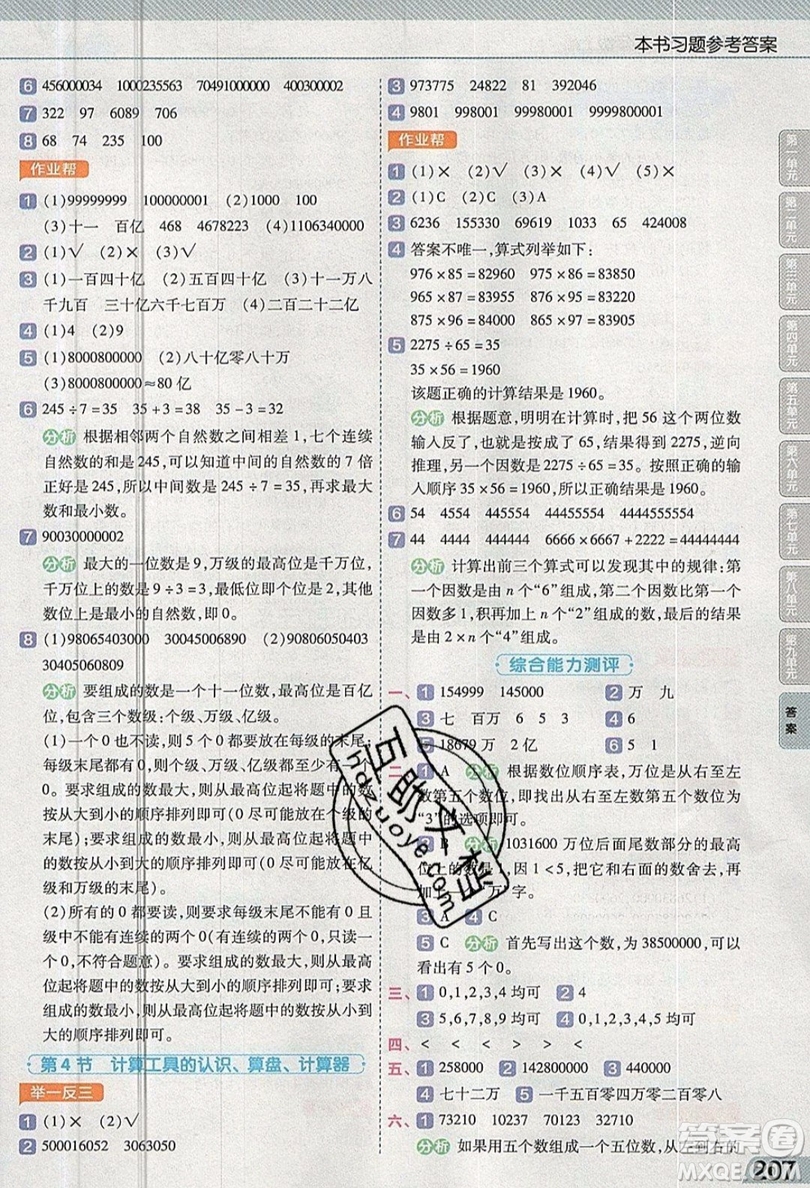 本书习题参考答案
6 456000034 100235750 70491000000 800004
7 322 97 6089 706
8 68 74 235 100
作业帮
1 (1)99999999 100000001 (2)1000 100
(3)十一 百亿 468 4678223 (4)1106340000
2 (1)√ (2)×
3 (1)一百四十亿 (2)五百四十亿 (3)十一万八
千九百 三十亿六千七百万 (4)二百二十二亿
4 (1)4 (2)9
5 (1)8000800000 (2)八十亿零八十万
(3)8000800000≈80 亿
6 245÷7=35 35+3=38 35-3=32
分析 根据相邻两个自然数之间相差 1,七个连续
自然数的和是 245,可以知道中间数的 7 倍
正好是 245,所以中间数是 245÷7=35,再求最大
数和最小数。
7 90030000002
分析 最大的一位数是 9,万级的最高位是千万位,
千万位上的数是 9÷3=3,个位是最小的质数,其
他数位上是最小的自然数,即 0。
8 (1)98065403000 30045006890 (2)90806050403
30405060809
分析 要组成的数是一个十一位数,最高位是百亿
位,分为三个数级:个级、万级、亿级。
(1)一个 0 也不读,则 5 个 0 都要放在每级的末尾;
要求组成最大的数,则把 5 个 0 都放在万级和个级
的末尾,从最高位起将题中的数
从大到小的顺序排列即可(3 个 0 放在个级的
末尾);要求组成最小的数,从最高位起将题中的数
按从小到大的顺序排列即可(3 个 0 放在
亿级和万级的末尾)。
(2)所有的 0 都要读,要求每级末尾不能有 0 且每
级中不能有连续的两个 0(有连续的两个 0,只读一
个 0,不符合题意)。要求组成的数是最大的,
则从最高位起将题中的数按从大到小的顺序排列
即可;要求组成的数是最小的,
则从最高位起将题中的数按从小到大
的顺序排列即可。
第 4 节 计算工具的认识、算盘、计算器
举一反三
1 (1)× (2)√
2 500016052 3063050
3 973775 24822 81 392046
4 9801 998001 99980001 9999800001
作业帮
1 (1)× (2)√ (3)× (4)√
2 (1)C (2)C (3)A
3 6236 155330 69619 1033 65 424008
4 答案不唯一,算式列举如下:
976×85=82960 975×86=83850
965×87=83955 956×87=83220
967×85=82195 965×87=83905
5 2275÷65=35
35×56=1960
该题正确的计算结果是 1960。
分析 根据题意,明明在计算时,把 56 这个两位数
输入反了,也就是输成了 65,结果得到 2275,逆向
推理,另一个因数是 2275÷65=35。按照正确的输
入顺序 35×56=1960,所以正确的结果是 1960。
6 54 4554 445554 44455554 4444555554
7 44 4444 444444 6666×6667+2222=44444444
分析 计算出前三个算式可以发现其中的规律:第
一个因数是由 n 个“6”组成,第二个因数比第一个
因数大 1,积再加上 n 个“2”组成的数,最后的结果
是由 2×n 个“4”组成。
综合能力测评
一、1 154999 145000 2 万 九
3 七 百万 6 5 3 4 6
5 18679 万 2 亿 6 5 1
二、1 A 分析 根据数位顺序表,万位是从右至左
数第五个数位,即找出从右往左数第五个数位为
“3”的选项即可。
2 B 分析 1031600 万位后面尾数部分的最高
位上是 1,因 1<5,把它和右面的数舍去,再
万”字。
3 A 4 C
5 C 分析 首先写出这个数,为 38500000,可以
看出有 5 个 0。
三、1 0,1,2,3,4 均可 2 4
3 5,6,7,8,9 均可 4 0,1,2,3,4,5 均可
四、< < < < > <
五、1 258000 2 142800000 3 480
4 七十二万 5 一千五百零四万零二百零八
六、1 73210 10237 70123 32710
分析 如果用五个数组成一个五位数,从左到右的
第一单元
第二单元
第三单元
第四单元
第五单元
第六单元
第七单元
第八单元
第九单元
答案
百助文档
hdzuoye.com
答案圈
MXQE.COM
207